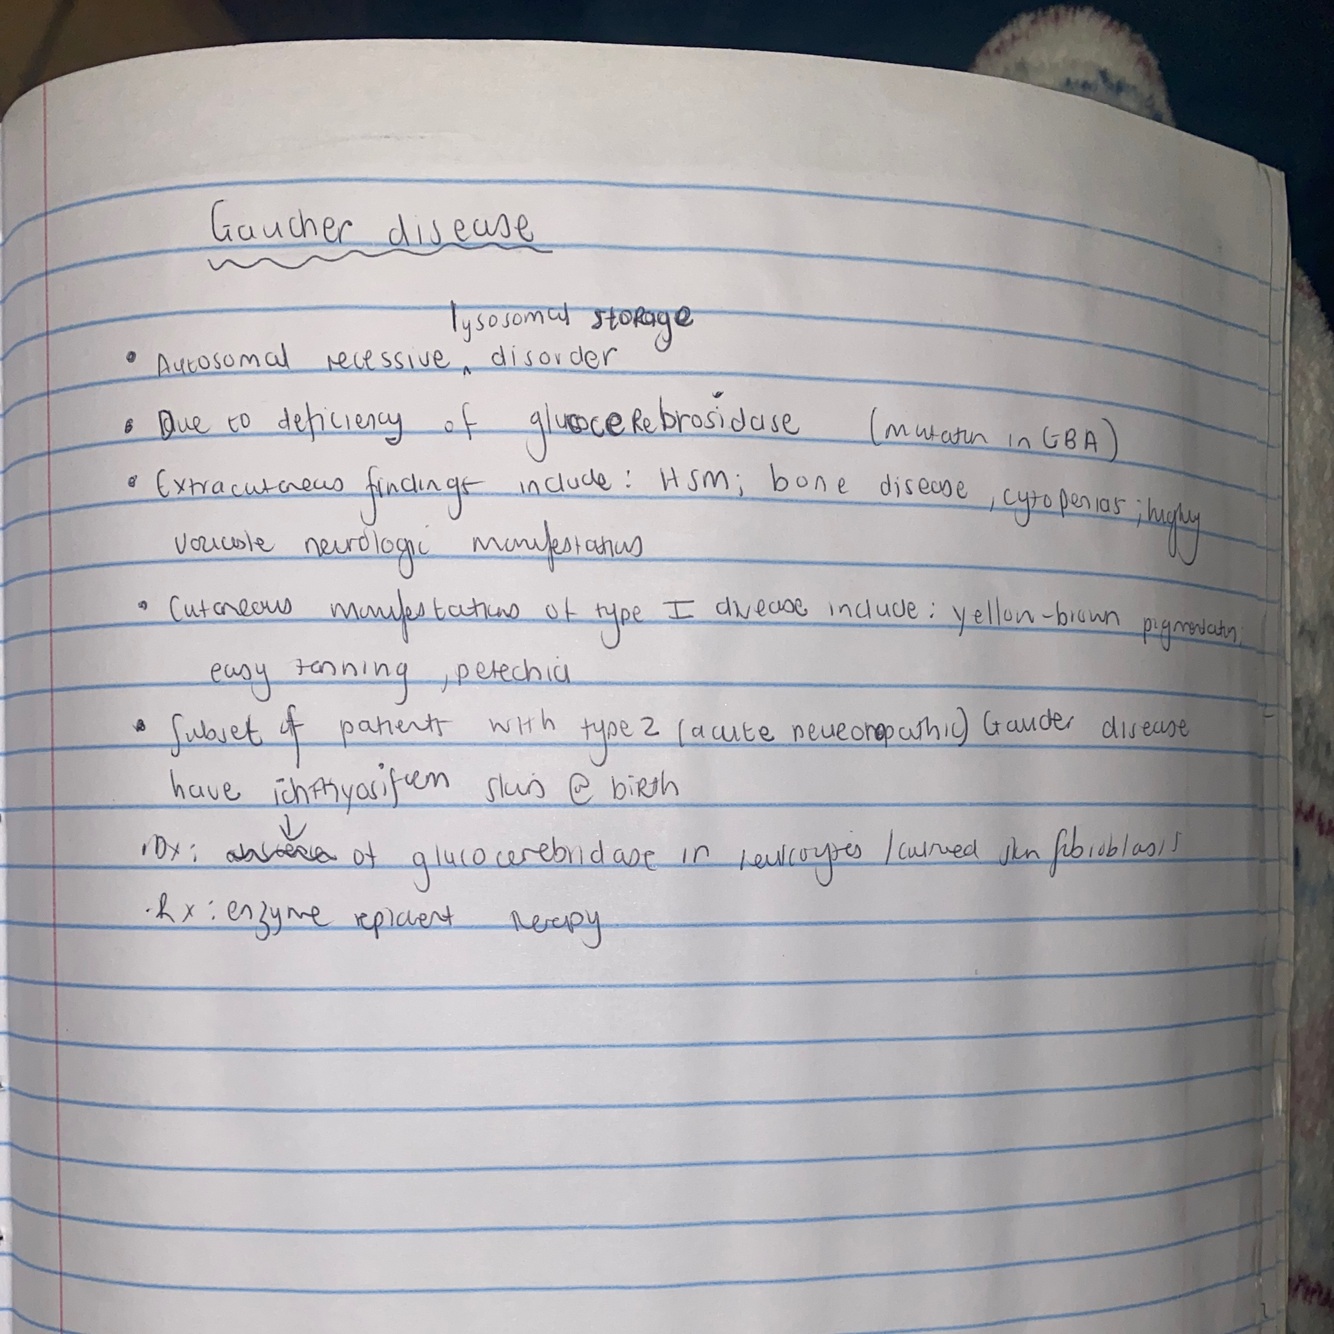 Gaucher disease
lysosomal storage
• Autosomal recessive ^ disorder
• Due to deficiency of glucocerebrosidase (mutation in GBA)
• Extracutaneous findings include: HSM; bone disease, cytopenias; highly
variable neurologic manifestations
• Cutaneous manifestations of type I disease include: yellow-brown pigmentation;
easy tanning, petechia
• Subset of patients with type 2 (acute neueoropathic) Gaucher disease
have ichthyosiform skin @ birth
• Dx: ↓ of glucocerebridase in leukocytes / cultured skin fibroblasts
• Rx: enzyme replacent therapy